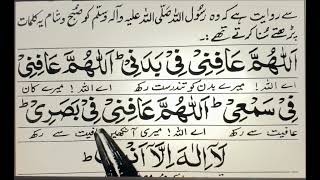 سے روایت ہے کہ وہ رسول اللہ صلی اللہ علیہ وآلہ وسلم کو صبح وشام یہ کلمات
پڑھتے سنا کرتے تھے:۔
اَللّٰهُمَّ عَافِنِیْ فِیْ بَدَنِیْ ط اَللّٰهُمَّ عَافِنِیْ
اے اللہ! میرے بدن کو تندرست رکھ اے اللہ! میرے کان
فِیْ سَمْعِیْ ط اَللّٰهُمَّ عَافِنِیْ فِیْ بَصَرِیْ ط
عافیت سے رکھ اے اللہ! میری آنکھیں عافیت سے رکھ
لَآ اِلٰهَ اِلَّآ